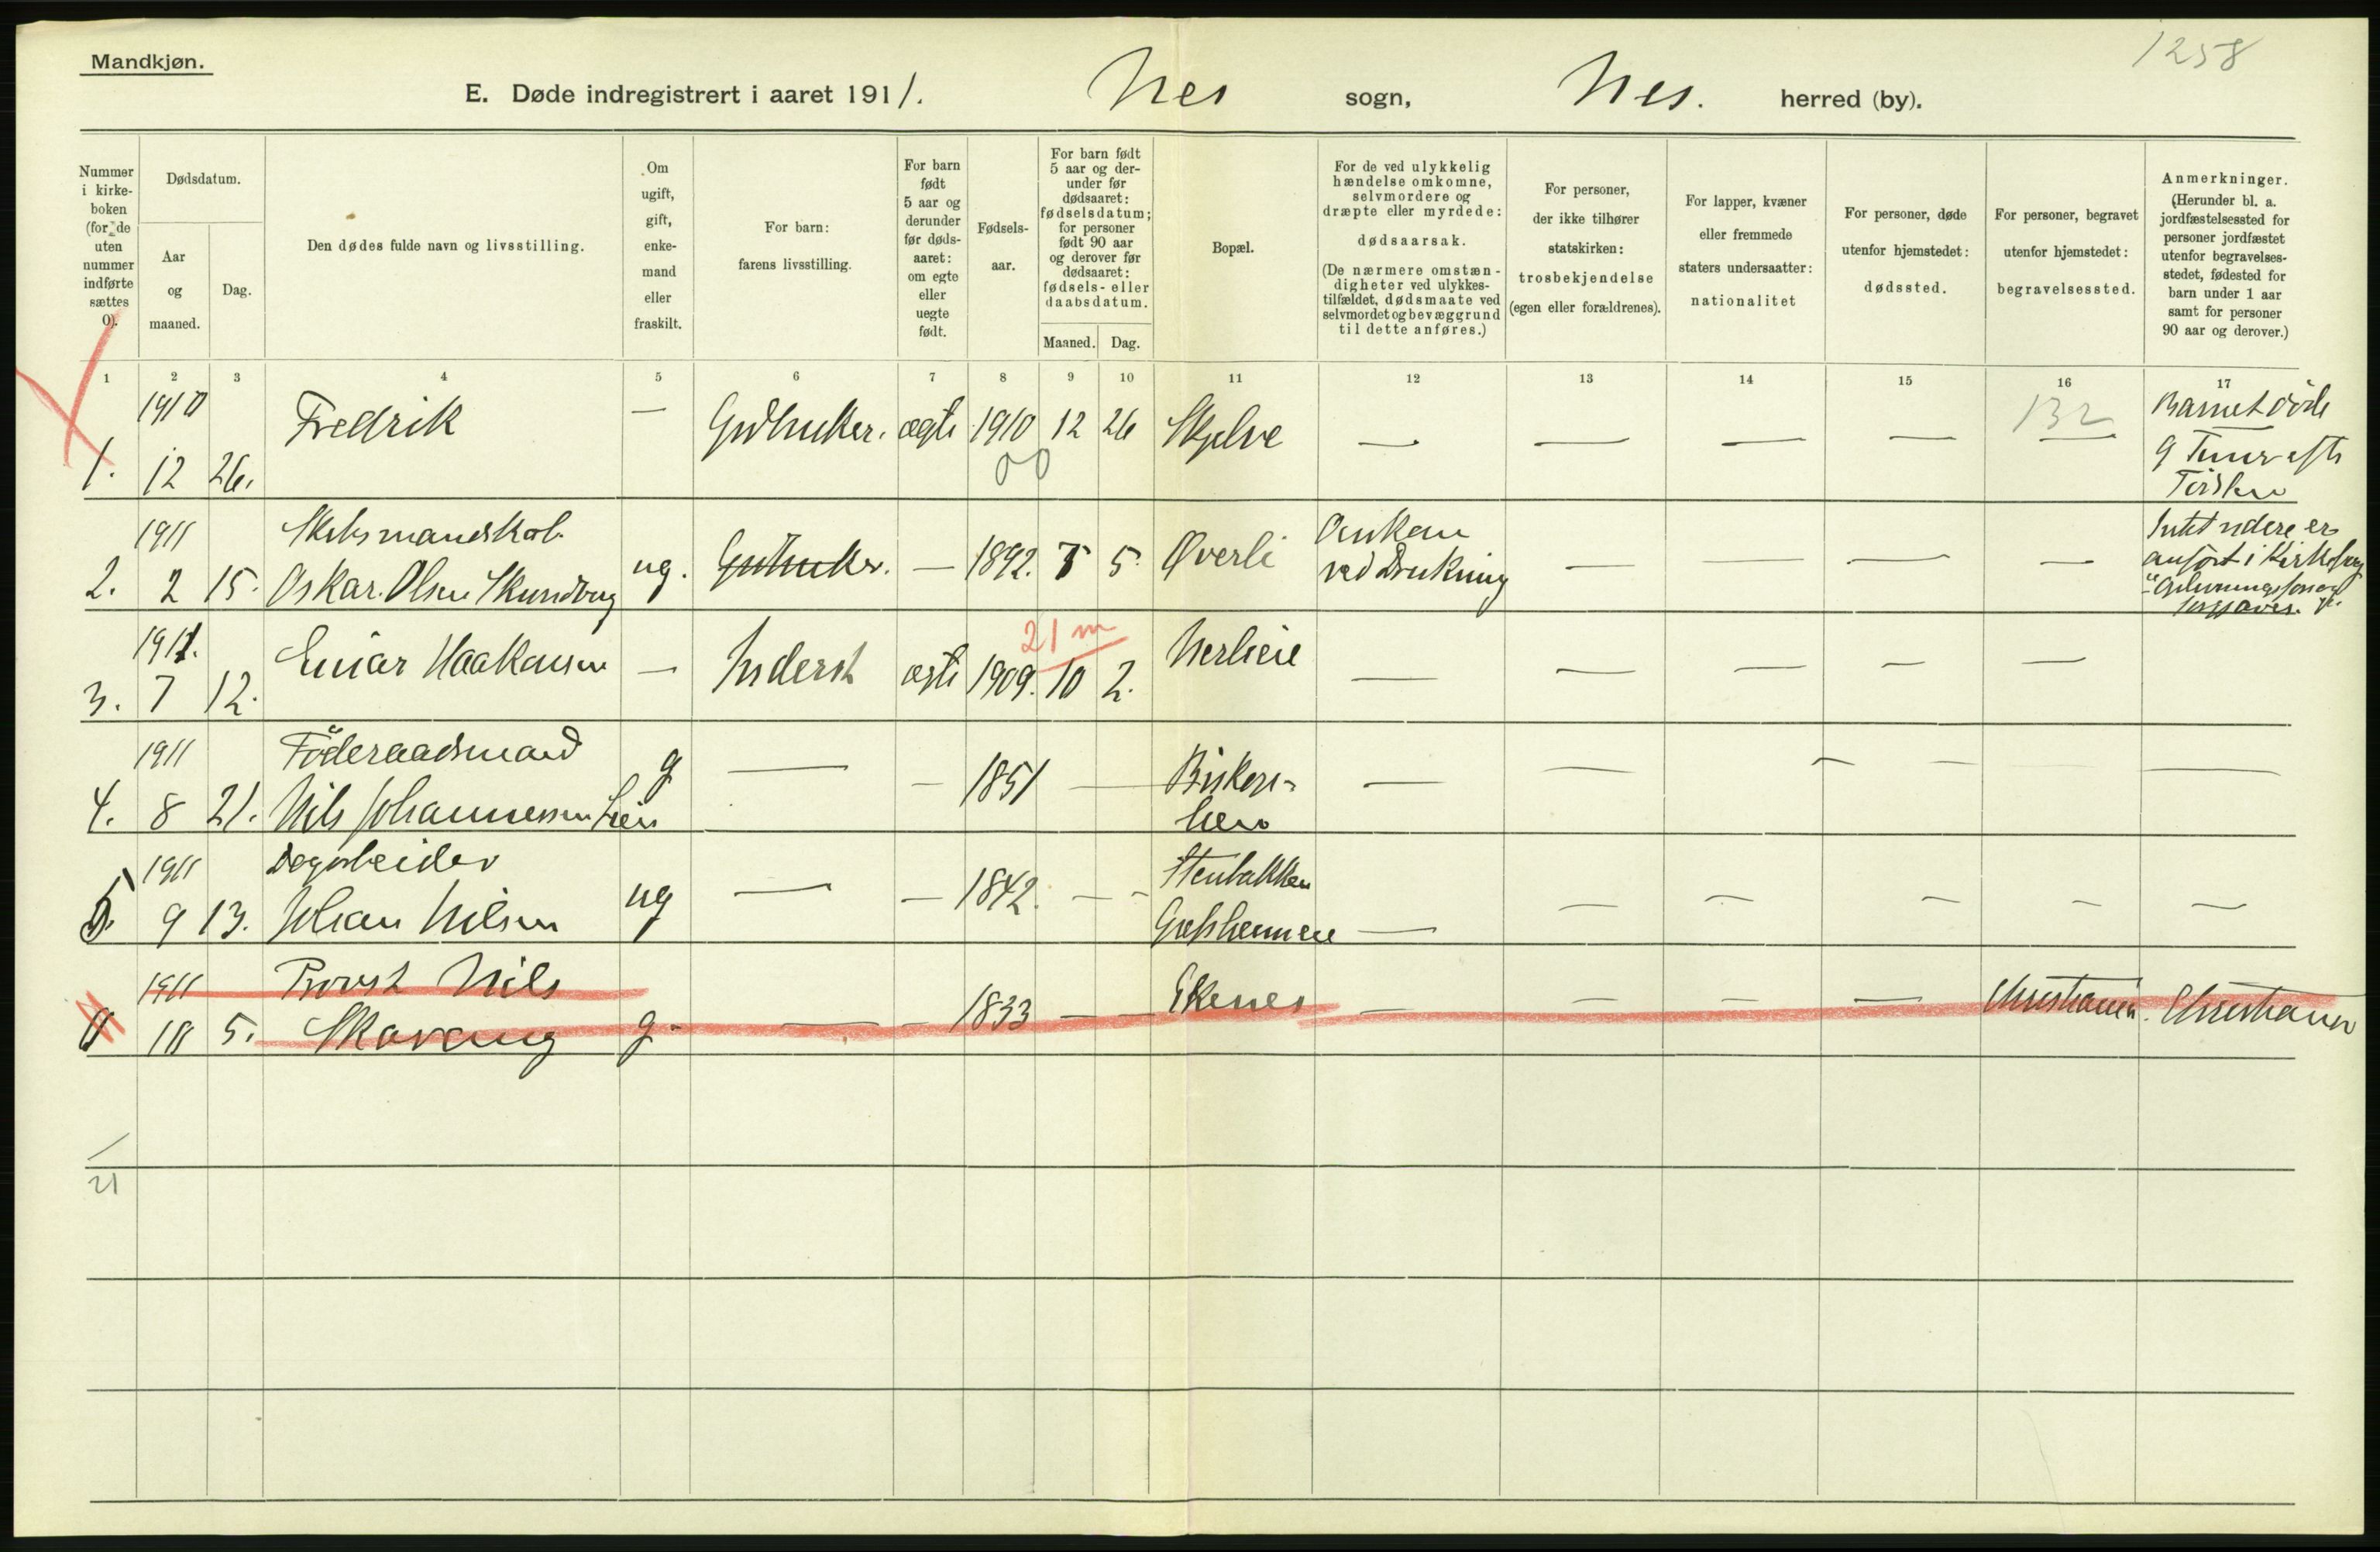 1258
Mandkjøn.
E. Døde indregistrert i aaret 1911. Nes sogn, Nes. herred (by).
Nummer
i kirke-
boken
(for de
uten
nummer
indførte
sættes
0).
Dødsdatum.
Aar
og
maaned.
Dag.
Den dødes fulde navn og livsstilling.
Om
ugift,
gift,
enke-
mand
eller
fraskilt.
For barn:
farens livsstilling.
For barn
født
5 aar og
derunder
før døds-
aaret:
om egte
eller
uegte
født.
Fødsels-
aar.
For barn født
5 aar og der-
under før
dødsaaret:
fødselsdatum;
for personer
født 90 aar
og derover før
dødsaaret:
fødsels- eller
daabsdatum.
Maaned. Dag.
Bopæl.
For de ved ulykkelig
hændelse omkomne,
selvmordere og
dræpte eller myrdede:
dødsaarsak.
(De nærmere omstæn-
digheter ved ulykkes-
tilfældet, dødsmaate ved
selvmordet og bevæggrund
til dette anføres.)
For personer,
der ikke tilhører
statskirken:
trosbekjendelse
(egen eller forældrenes).
For lapper, kvæner
eller fremmede
staters undersaatter:
nationalitet
For personer, døde
utenfor hjemstedet:
dødssted.
For personer, begravet
utenfor hjemstedet:
begravelsessted.
Anmerkninger.
(Herunder bl. a.
jordfæstelsessted for
personer jordfæstet
utenfor begravelses-
stedet, fødested for
barn under 1 aar
samt for personer
90 aar og derover.)
1 2 3 4 5 6 7 8 9 10 11 12 13 14 15 16 17
1910 132 Barnet døde
Fredrik — Grdbruker. ægte 1910 12 26 Skjelve — — — — —
00 9 Timer efter
1. 12 26. Fødslen
1911 Skibsmandskab.
2. 2 15. Oskar Olsen ug. Grdbruker. — 1892. 5. Øverli
ved Drukning — — — —
anført i Kirkebog
21 m
1911.
3. 7 12. Einar Haakonsen — Inderst ægte 1909. 10 2. Nerlieie — — — — —
1911 Föderaadsmand
4. 8 21. Nils Johannessen Lien g — — 1851 — — — — — — —
1911 Dagarbeider Stenbakken
5. 9 13. Johan Nilsen ug — — 1842. — — — — — — — —
1911 Provst Nils
5. Skavang g. — — 1833 — — Ekenes — — — — Christiania. Christiania
21